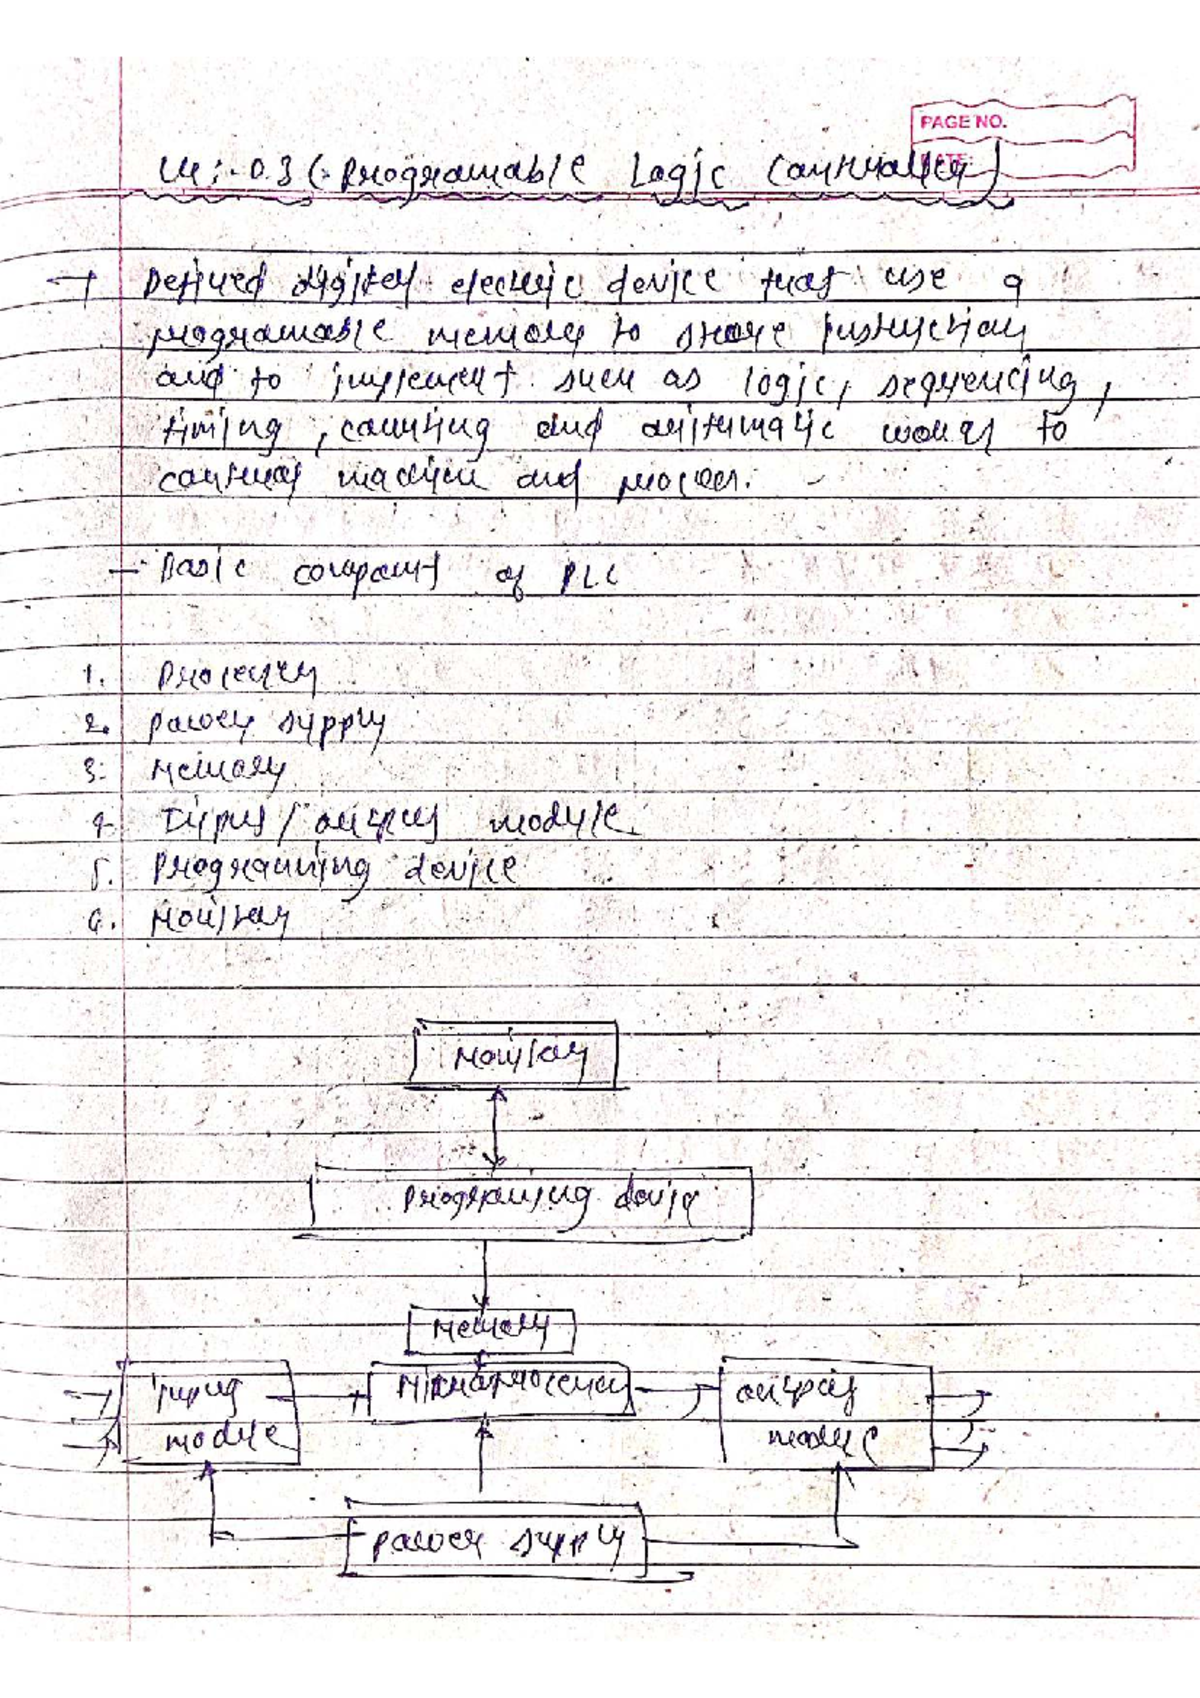 PAGE NO.
DATE:
Ch:-03 (:Programable Logic Controller)
→ Defined digital electric device that use a
programable memory to store instruction
and to implement such as logic, sequencing,
timing, counting and arithmatic works to
control machine and process.
- Basic component of PLC
1. Processer
2. power supply
3. Memory
4. Input/output module
5. Programing device
6. Monitor
Monitor
Programing device
Memory
input module
Microprocessor
output module
power supply